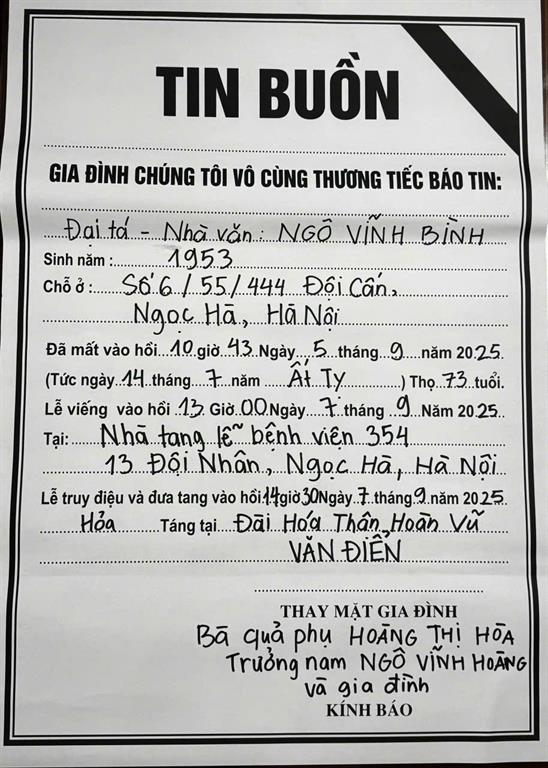 TIN BUỒN
GIA ĐÌNH CHÚNG TÔI VÔ CÙNG THƯƠNG TIẾC BÁO TIN:
Đại tá - Nhà văn: NGÔ VĨNH BÌNH
Sinh năm: 1953
Chỗ ở: Số 6/55/444 Đội Cấn,
Ngọc Hà, Hà Nội
Đã mất vào hồi 10 giờ 43 Ngày 5 tháng 9 năm 2025
(Tức ngày 14 tháng 7 năm Ất Tỵ) Thọ 73 tuổi.
Lễ viếng vào hồi 13 Giờ 00 Ngày 7 tháng 9 Năm 2025
Tại: Nhà tang lễ bệnh viện 354
13 Đội Nhân, Ngọc Hà, Hà Nội
Lễ truy điệu và đưa tang vào hồi 14 giờ 30 Ngày 7 tháng 9 năm 2025
Hỏa Táng tại Đài Hóa Thân Hoàn Vũ
VĂN ĐIỂN
THAY MẶT GIA ĐÌNH
Bà quả phụ HOÀNG THỊ HÒA
Trưởng nam NGÔ VĨNH HOÀNG
và gia đình
KÍNH BÁO